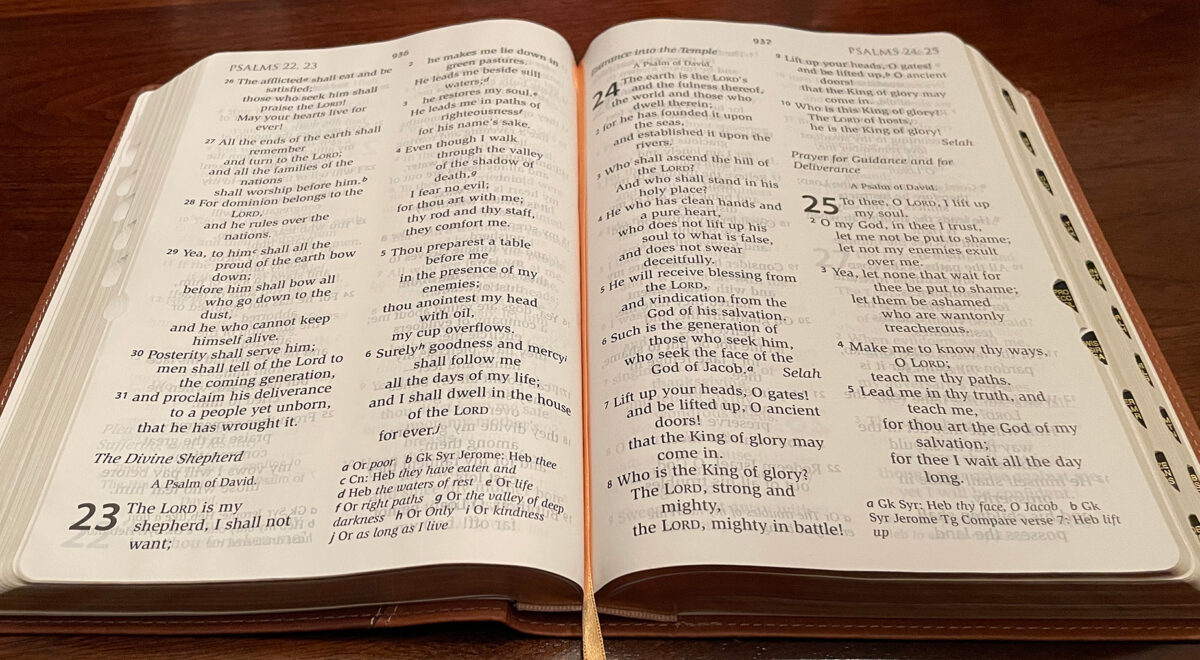 PSALMS 22, 23
936
26 The afflictedᵃ shall eat and be
satisfied;
those who seek him shall
praise the LORD!
May your hearts live for
ever!
27 All the ends of the earth shall
remember
and turn to the LORD;
and all the families of the
nations
shall worship before him.ᵇ
28 For dominion belongs to the
LORD,
and he rules over the
nations.
29 Yea, to himᶜ shall all the
proud of the earth bow
down;
before him shall bow all
who go down to the
dust,
and he who cannot keep
himself alive.
30 Posterity shall serve him;
men shall tell of the Lord to
the coming generation,
31 and proclaim his deliverance
to a people yet unborn,
that he has wrought it.
The Divine Shepherd
A Psalm of David.
23 The LORD is my
shepherd, I shall not
want;
2 he makes me lie down in
green pastures.
He leads me beside still
waters;ᵈ
3 he restores my soul.ᵉ
He leads me in paths of
righteousnessᶠ
for his name's sake.
4 Even though I walk
through the valley
of the shadow of
death,ᵍ
I fear no evil;
for thou art with me;
thy rod and thy staff,
they comfort me.
5 Thou preparest a table
before me
in the presence of my
enemies;
thou anointest my head
with oil,
my cup overflows.
6 Surelyʰ goodness and mercyⁱ
shall follow me
all the days of my life;
and I shall dwell in the house
of the LORD
for ever.ʲ
a Or poor b Gk Syr Jerome: Heb thee
c Cn: Heb they have eaten and
d Heb the waters of rest e Or life
f Or right paths g Or the valley of deep
darkness h Or Only i Or kindness
j Or as long as I live
937
PSALMS 24, 25
Entrance into the Temple
A Psalm of David.
24 The earth is the LORD's
and the fulness thereof,
the world and those who
dwell therein;
2 for he has founded it upon
the seas,
and established it upon the
rivers.
3 Who shall ascend the hill of
the LORD?
And who shall stand in his
holy place?
4 He who has clean hands and
a pure heart,
who does not lift up his
soul to what is false,
and does not swear
deceitfully.
5 He will receive blessing from
the LORD,
and vindication from the
God of his salvation.
6 Such is the generation of
those who seek him,
who seek the face of the
God of Jacob.ᵃ Selah
7 Lift up your heads, O gates!
and be lifted up, O ancient
doors!
that the King of glory may
come in.
8 Who is the King of glory?
The LORD, strong and
mighty,
the LORD, mighty in battle!
9 Lift up your heads, O gates!
and be lifted up,ᵇ O ancient
doors!
that the King of glory may
come in.
10 Who is this King of glory?
The LORD of hosts,
he is the King of glory!
Selah
Prayer for Guidance and for
Deliverance
A Psalm of David.
25 To thee, O LORD, I lift up
my soul.
2 O my God, in thee I trust,
let me not be put to shame;
let not my enemies exult
over me.
3 Yea, let none that wait for
thee be put to shame;
let them be ashamed
who are wantonly
treacherous.
4 Make me to know thy ways,
O LORD;
teach me thy paths.
5 Lead me in thy truth, and
teach me,
for thou art the God of my
salvation;
for thee I wait all the day
long.
a Gk Syr: Heb thy face, O Jacob b Gk
Syr Jerome Tg Compare verse 7: Heb lift
up